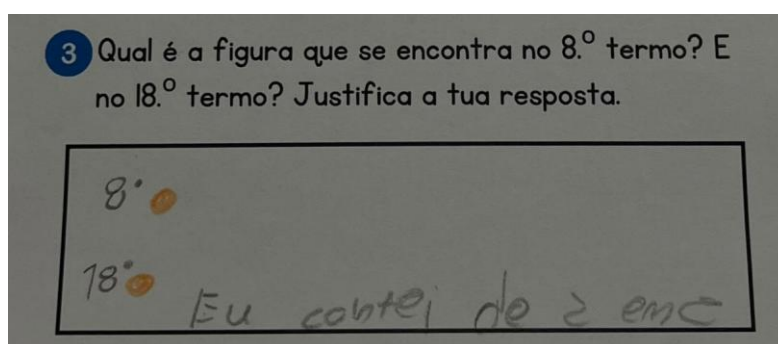 3 Qual é a figura que se encontra no 8.º termo? E
no 18.º termo? Justifica a tua resposta.
8.
18.
Eu contei de 2 em 2